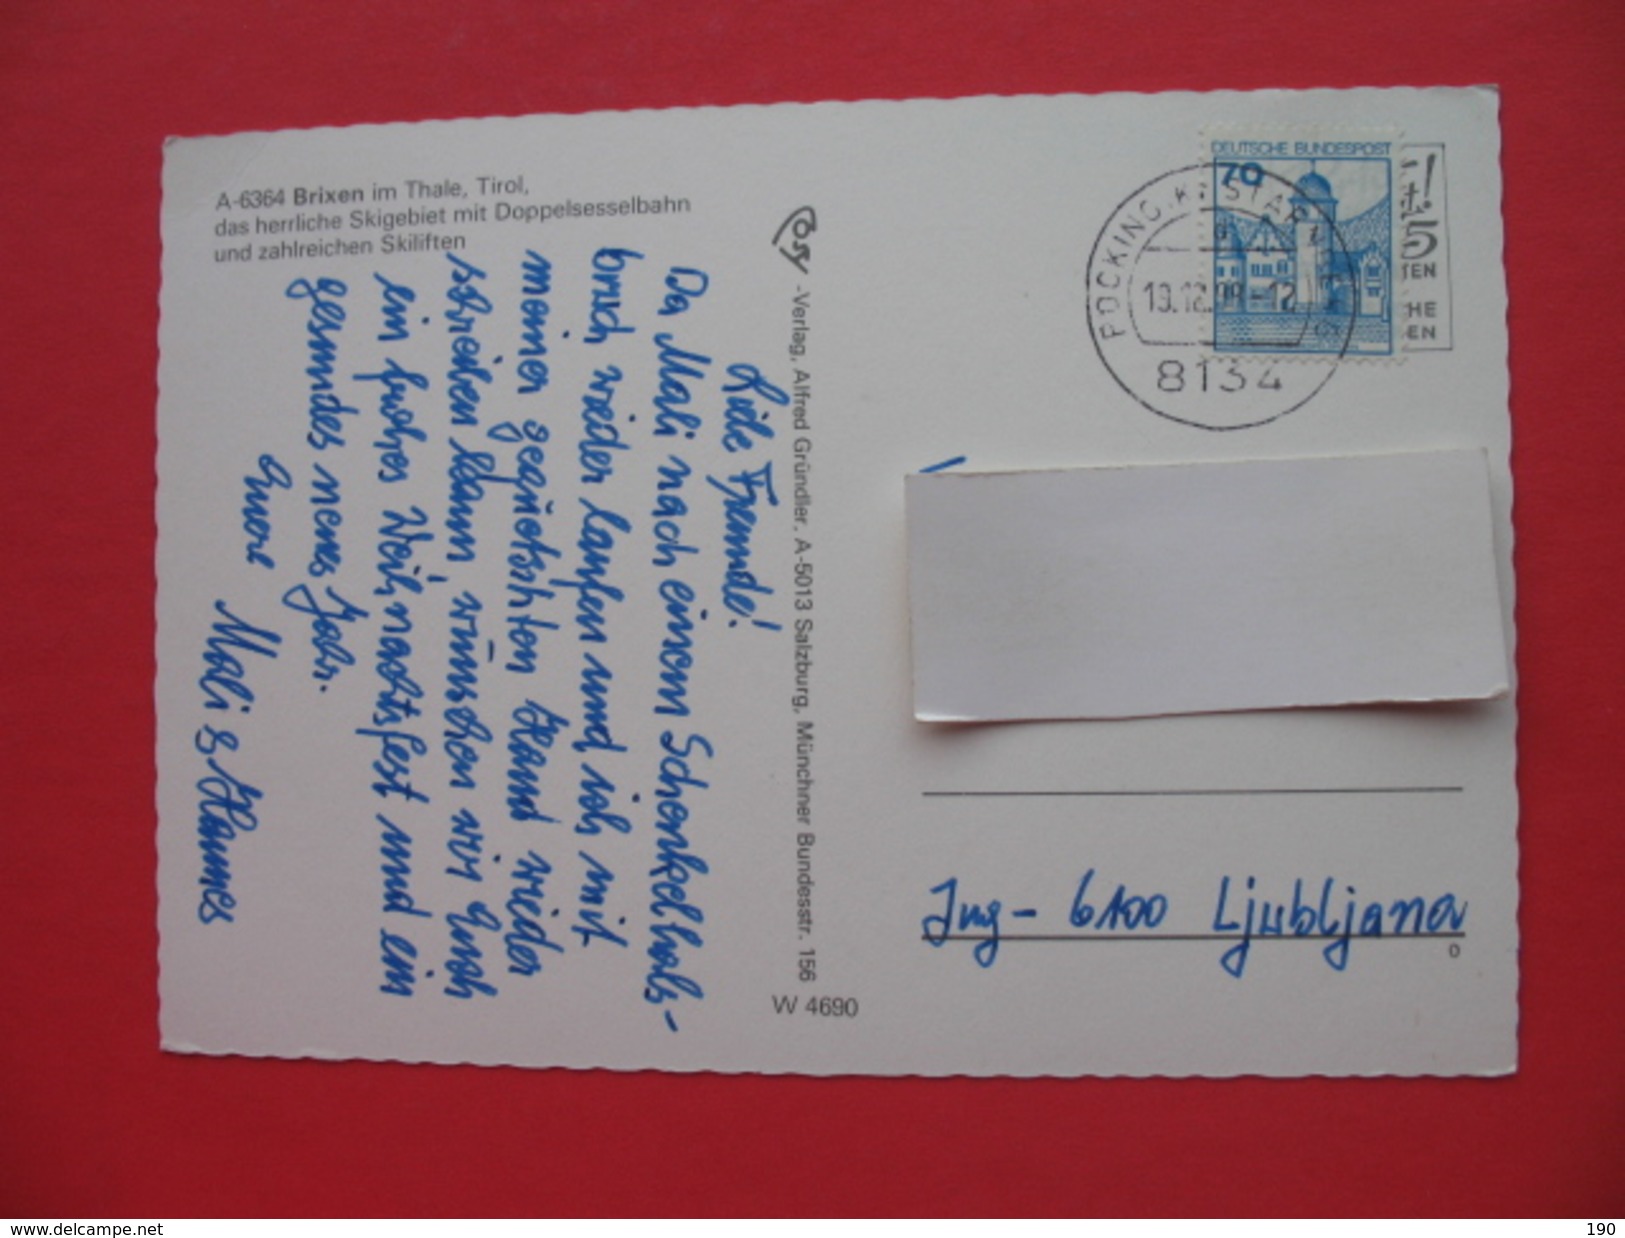 A-6364 Brixen im Thale, Tirol,
das herrliche Skigebiet mit Doppelsesselbahn
und zahlreichen Skiliften
Liebe Freunde!
Da Mali nach einem Schenkelhals-
bruch wieder laufen und ich mit
meiner gequetschten Hand wieder
schreiben kann, wünschen wir Euch
ein frohes Weihnachtsfest und ein
gesundes neues Jahr.
Euere
Mali & Hannes
Cosy -Verlag, Alfred Gründler, A-5013 Salzburg, Münchner Bundesstr. 156
W 4690
DEUTSCHE BUNDESPOST
70
POCKING, KR STARNBERG
8134
5
TEN
HE
EN
Jug - 6100 Ljubljana
delcampe.net
190